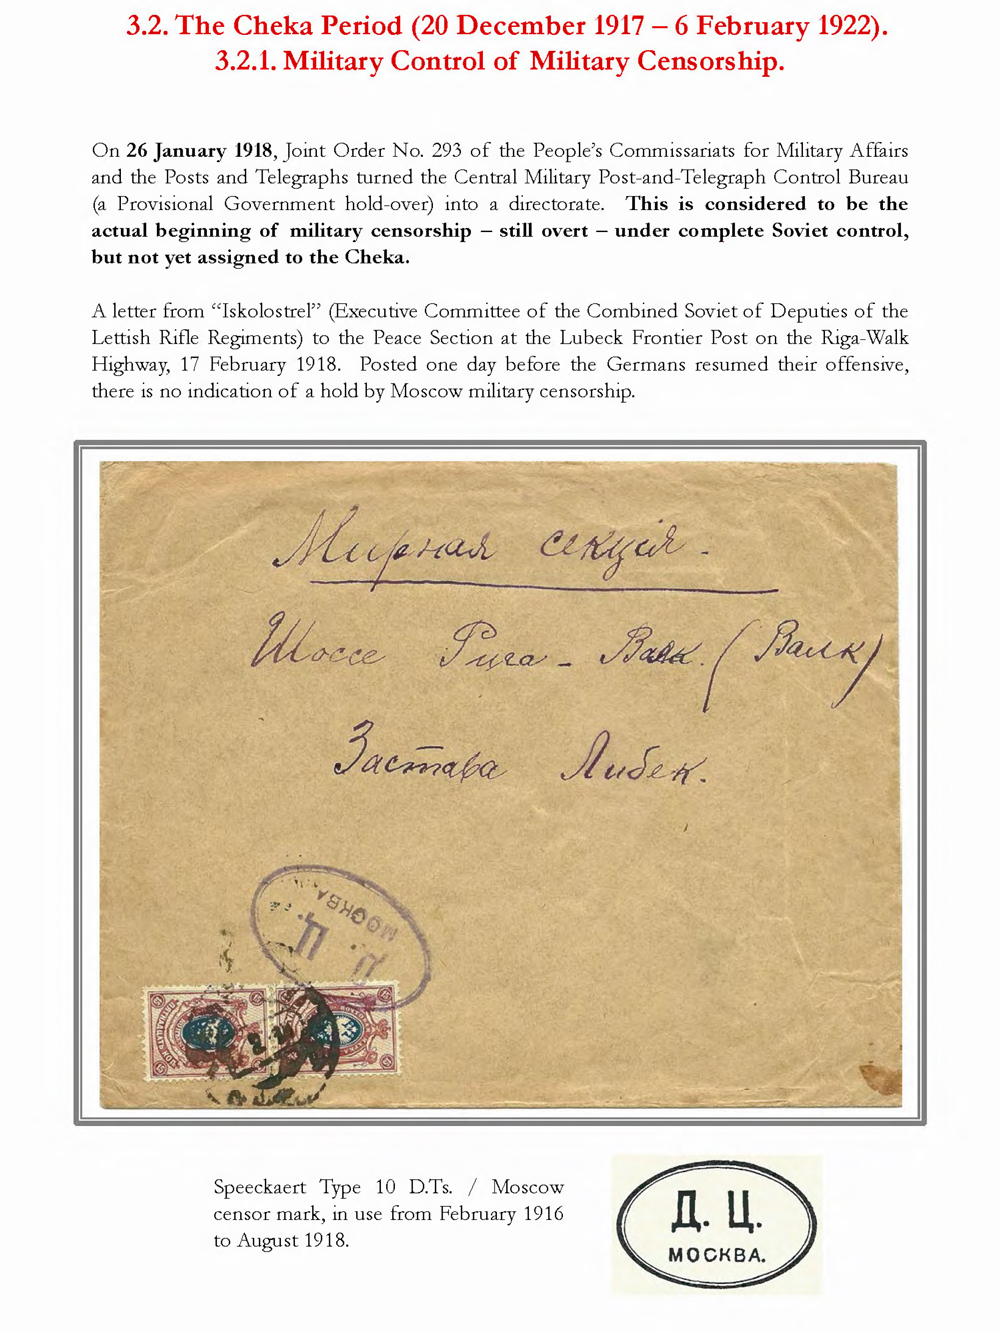 3.2. The Cheka Period (20 December 1917 – 6 February 1922).
3.2.1. Military Control of Military Censorship.
On 26 January 1918, Joint Order No. 293 of the People's Commissariats for Military Affairs
and the Posts and Telegraphs turned the Central Military Post-and-Telegraph Control Bureau
(a Provisional Government hold-over) into a directorate. This is considered to be the
actual beginning of military censorship – still overt – under complete Soviet control,
but not yet assigned to the Cheka.
A letter from “Iskolostrel” (Executive Committee of the Combined Soviet of Deputies of the
Lettish Rifle Regiments) to the Peace Section at the Lubeck Frontier Post on the Riga-Walk
Highway, 17 February 1918. Posted one day before the Germans resumed their offensive,
there is no indication of a hold by Moscow military censorship.
Мирная секцiя.
Шоссе Рига - Валк. (Валк)
Застава Либек.
Д. Ц.
МОСКВА
Speeckaert Type 10 D.Ts. / Moscow
censor mark, in use from February 1916
to August 1918.
Д. Ц.
МОСКВА.